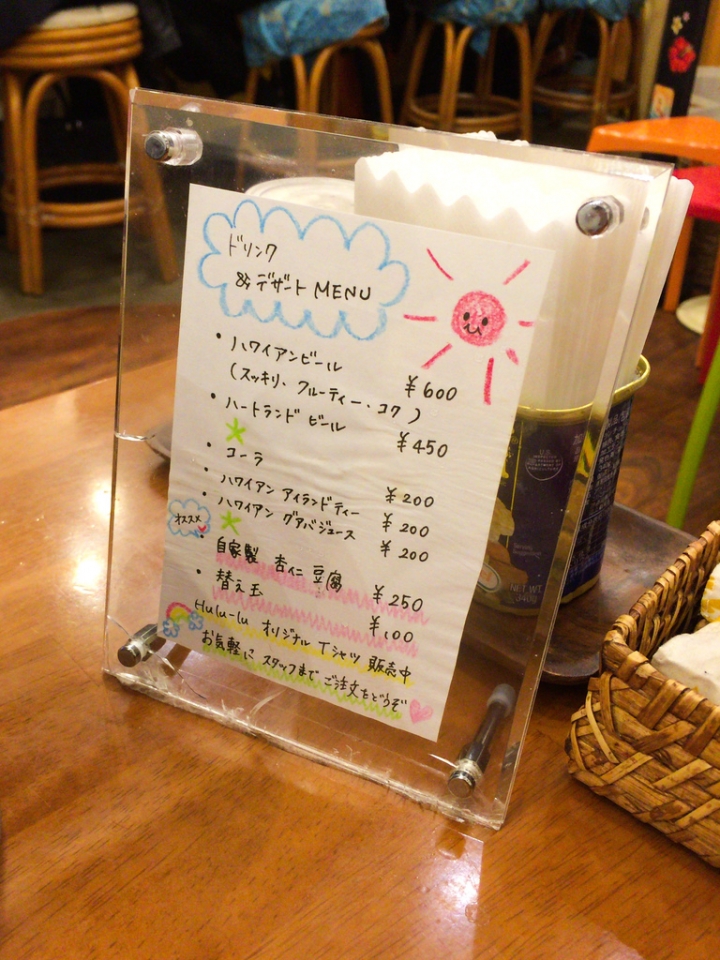 ドリンク
& デザート MENU
・ハワイアンビール ¥600
(スッキリ、フルーティー・コク)
・ハートランド ビール ¥450
・コーラ ¥200
・ハワイアン アイランドティー ¥200
・ハワイアン グァバジュース ¥200
オススメ
・自家製 杏仁豆腐 ¥250
・替え玉 ¥100
Hulu-lu オリジナル Tシャツ 販売中
お気軽に スタッフまで ご注文をどうぞ
NET WT.
340g